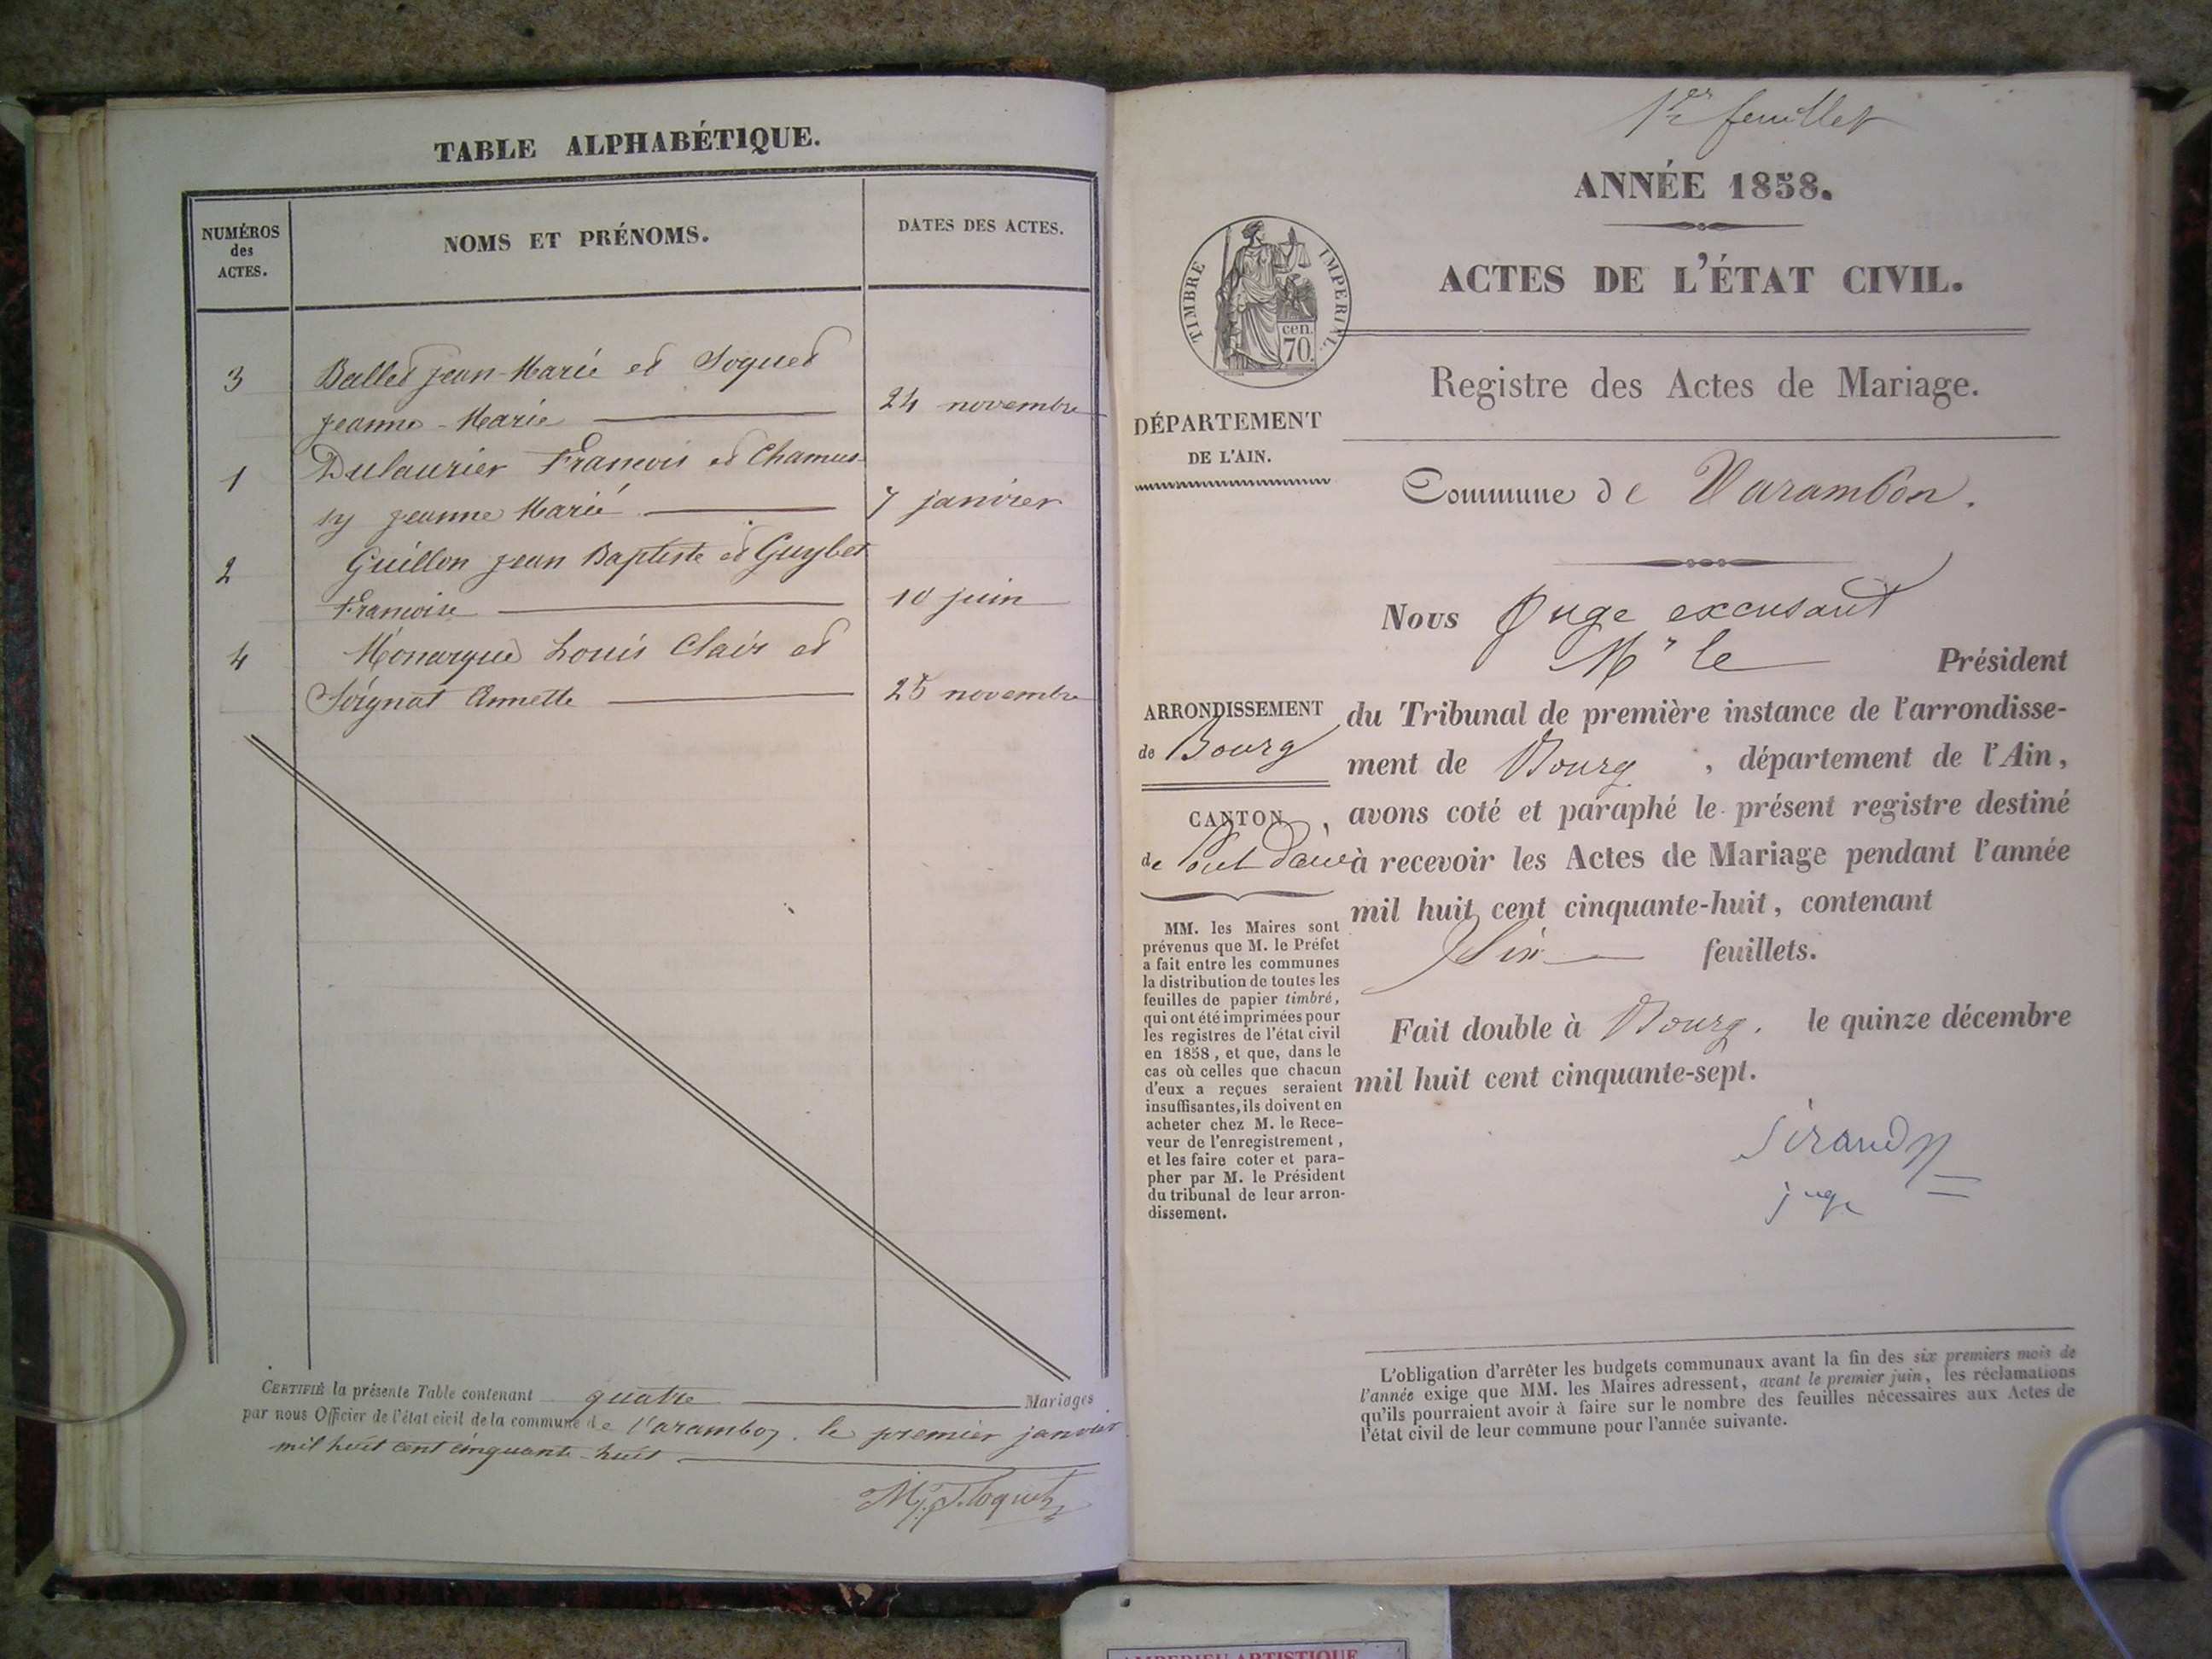 TABLE ALPHABÉTIQUE.
NUMÉROS
des
ACTES.
NOMS ET PRÉNOMS.
DATES DES ACTES.
3 Ballet Jean-Marie et Soquet
Jeanne-Marie 24 novembre
1 Dulaurier Francois et Chamus-
sy Jeanne Marie 7 janvier
2 Guillon Jean Baptiste et Guybet
Francoise 10 juin
4 Monarque Louis Clair et
Soignat Annette 25 novembre
CERTIFIÉ la présente Table contenant quatre Mariages
par nous Officier de l'état civil de la commune de Varambon. le premier janvier
mil huit cent cinquante-huit
1er feuillet
ANNÉE 1858.
TIMBRE IMPERIAL.
cen.
70.
ACTES DE L'ÉTAT CIVIL.
Registre des Actes de Mariage.
DÉPARTEMENT
DE L'AIN.
Commune de Varambon.
Nous Juge excusant
Mr le Président
du Tribunal de première instance de l'arrondisse-
ment de Bourg , département de l'Ain,
avons coté et paraphé le présent registre destiné
à recevoir les Actes de Mariage pendant l'année
mil huit cent cinquante-huit, contenant
Six feuillets.
Fait double à Bourg. le quinze décembre
mil huit cent cinquante-sept.
Sirand
juge
ARRONDISSEMENT
de Bourg
CANTON
de Pont d'ain
MM. les Maires sont
prévenus que M. le Préfet
a fait entre les communes
la distribution de toutes les
feuilles de papier timbré,
qui ont été imprimées pour
les registres de l'état civil
en 1858, et que, dans le
cas où celles que chacun
d'eux a reçues seraient
insuffisantes, ils doivent en
acheter chez M. le Rece-
veur de l'enregistrement,
et les faire coter et para-
pher par M. le Président
du tribunal de leur arron-
dissement.
L'obligation d'arrêter les budgets communaux avant la fin des six premiers mois de
l'année exige que MM. les Maires adressent, avant le premier juin, les réclamations
qu'ils pourraient avoir à faire sur le nombre des feuilles nécessaires aux Actes de
l'état civil de leur commune pour l'année suivante.
AMBERIEU ARTISTIQUE